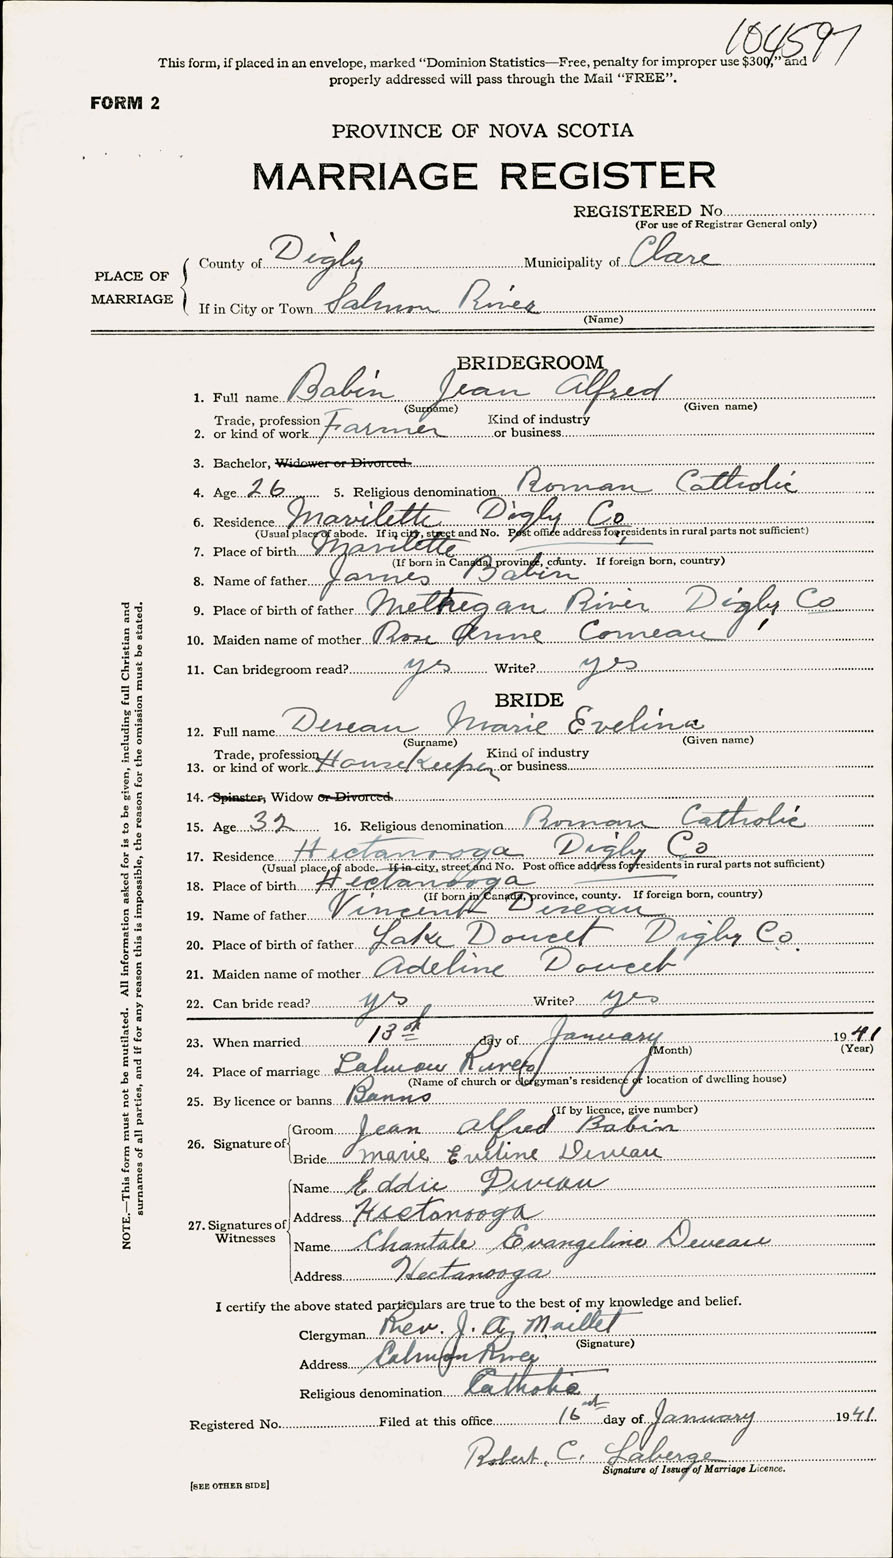 104597
This form, if placed in an envelope, marked “Dominion Statistics—Free, penalty for improper use $300,” and
properly addressed will pass through the Mail “FREE”.
FORM 2
PROVINCE OF NOVA SCOTIA
MARRIAGE REGISTER
REGISTERED No.
(For use of Registrar General only)
PLACE OF MARRIAGE
County of Digby Municipality of Clare
If in City or Town Salmon River
(Name)
BRIDEGROOM
1. Full name Babin Jean Alfred
(Surname) (Given name)
2. Trade, profession or kind of work Farmer Kind of industry or business
3. Bachelor, Widower or Divorced
4. Age 26 5. Religious denomination Roman Catholic
6. Residence Mavilette Digby Co
(Usual place of abode. If in city, street and No. Post office address for residents in rural parts not sufficient)
7. Place of birth Mavilette
(If born in Canada, province, county. If foreign born, country)
8. Name of father James Babin
9. Place of birth of father Methegan River Digby Co
10. Maiden name of mother Rose Anne Comeau
11. Can bridegroom read? yes Write? yes
BRIDE
12. Full name Deveau Marie Evelina
(Surname) (Given name)
13. Trade, profession or kind of work Housekeeper Kind of industry or business
14. Spinster, Widow or Divorced
15. Age 32 16. Religious denomination Roman Catholic
17. Residence Hectanooga Digby Co
(Usual place of abode. If in city, street and No. Post office address for residents in rural parts not sufficient)
18. Place of birth Hectanooga
(If born in Canada, province, county. If foreign born, country)
19. Name of father Vincent Deveau
20. Place of birth of father Lake Doucet Digby Co.
21. Maiden name of mother Adeline Doucet
22. Can bride read? yes Write? yes
23. When married 13th day of January 1941
(Month) (Year)
24. Place of marriage Salmon River
(Name of church or clergyman’s residence or location of dwelling house)
25. By licence or banns Banns
(If by licence, give number)
26. Signature of
Groom Jean Alfred Babin
Bride Marie Eveline Deveau
27. Signatures of Witnesses
Name Eddie Deveau
Address Hectanooga
Name Chantale Evangeline Deveau
Address Hectanooga
I certify the above stated particulars are true to the best of my knowledge and belief.
Clergyman Rev. J. A. Maillet
(Signature)
Address Salmon River
Religious denomination Catholic
Registered No. Filed at this office 16th day of January 1941
Robert. C. Laberge
Signature of Issuer of Marriage Licence.
[SEE OTHER SIDE]
NOTE.—This form must not be mutilated. All information asked for is to be given, including full Christian and
surnames of all parties, and if for any reason this is impossible, the reason for the omission must be stated.